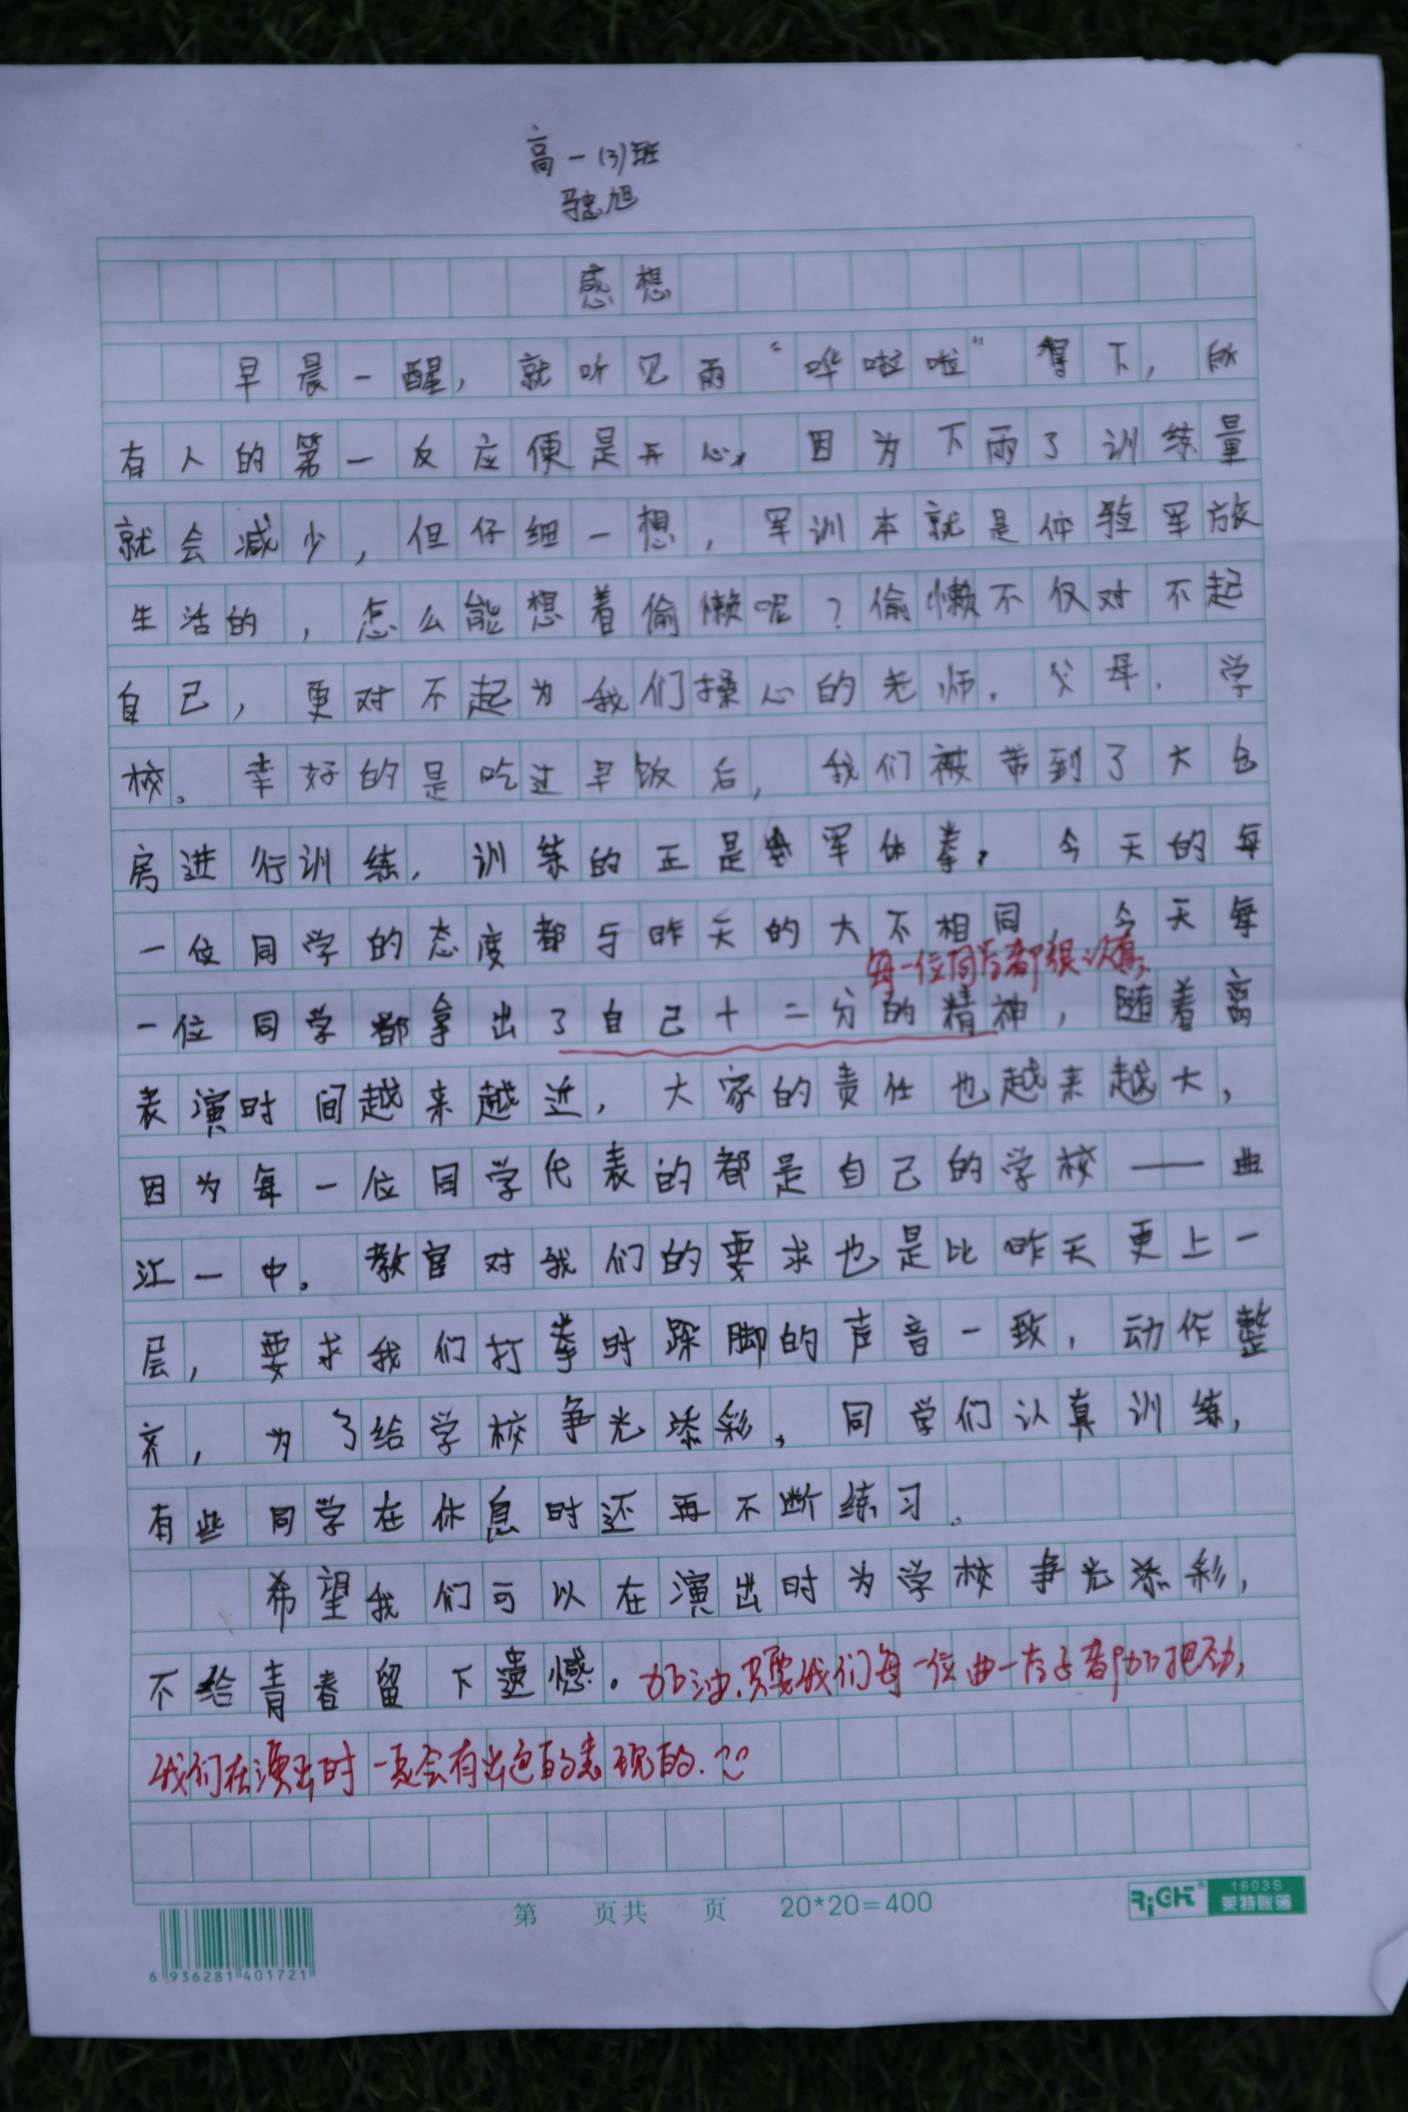 高一(3)班
马志旭
感想
早晨一醒，就听见雨“哗啦啦”得下，所
有人的第一反应便是开心，因为下雨了训练量
就会减少，但仔细一想，军训本就是体验军旅
生活的，怎么能想着偷懒呢？偷懒不仅对不起
自己，更对不起为我们操心的老师、父母、学
校。幸好的是吃过早饭后，我们被带到了大仓
房进行训练，训练的正是军体拳。今天的每
一位同学的态度都与昨天的大不相同，今天每
每一位同学都很认真，
一位同学都拿出了自己十二分的精神，随着离
表演时间越来越近，大家的责任也越来越大，
因为每一位同学代表的都是自己的学校——曲
江一中。教官对我们的要求也是比昨天更上一
层，要求我们打拳时跺脚的声音一致，动作整
齐，为了给学校争光添彩，同学们认真训练，
有些同学在休息时还再不断练习。
希望我们可以在演出时为学校争光添彩，
不给青春留下遗憾。加油，只要我们每一位曲一学子都加把劲，
我们在演出时一定会有出色的表现的.
第 页共 页 20*20=400
RiGHT® 1603S
莱特账簿
6 936281 401721